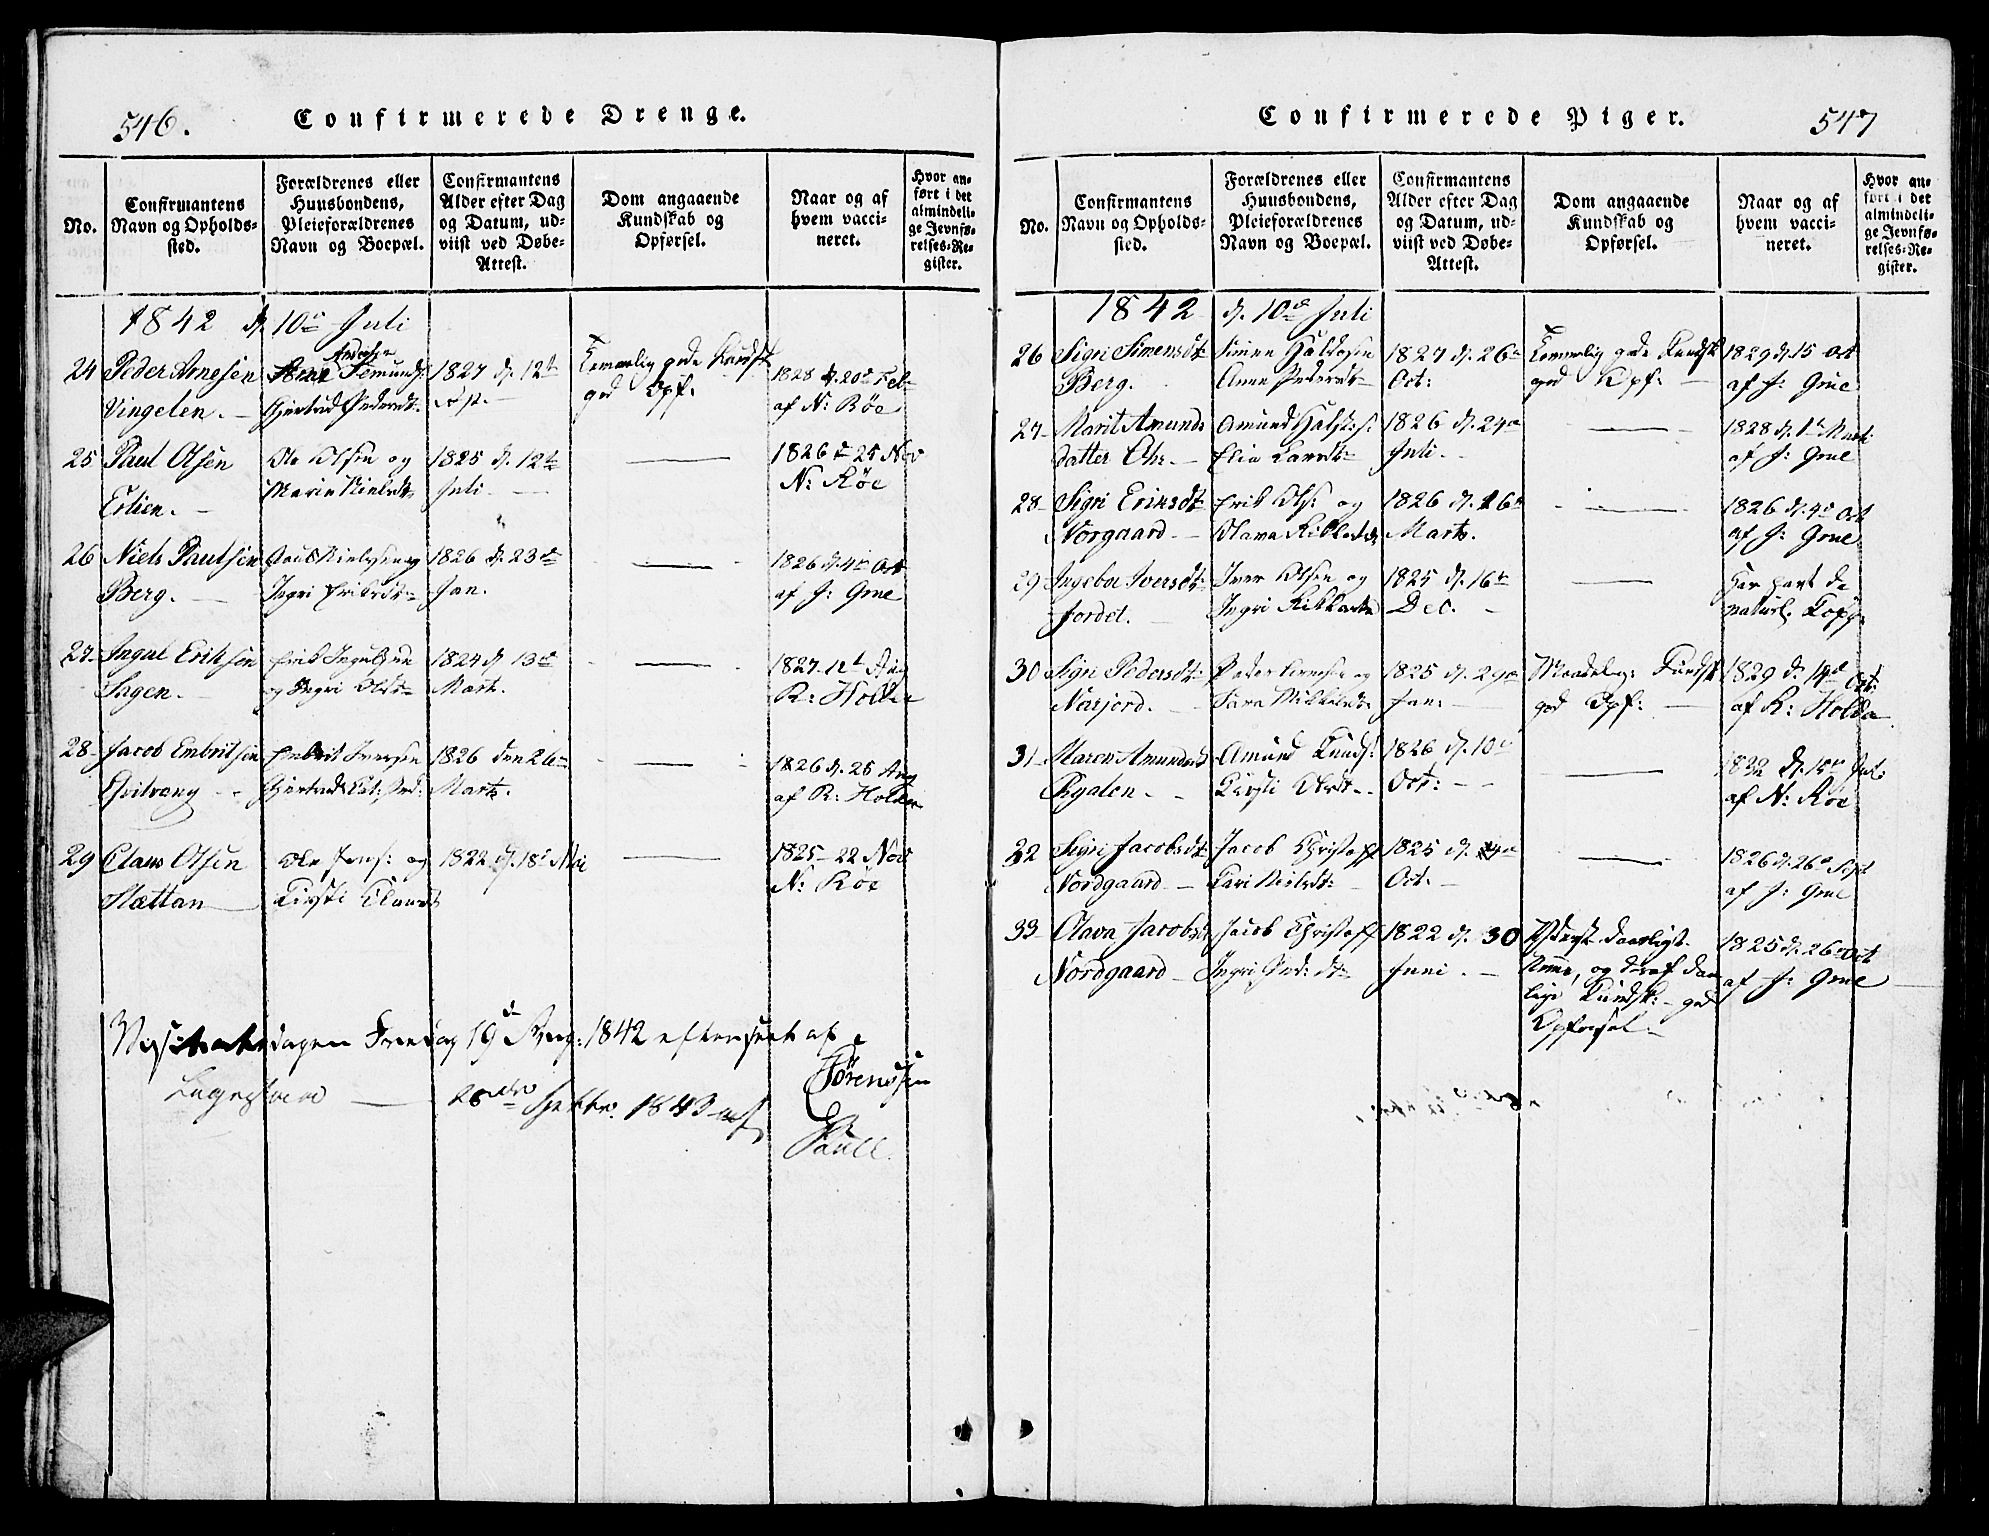 546.
Confirmerede Drenge.
No.
Confirmantens
Navn og Opholds-
sted.
Forældrenes eller
Huusbondens,
Pleieforældrenes
Navn og Boepæl.
Confirmantens
Alder efter Dag
og Datum, ud-
viist ved Døbe-
Attest.
Dom angaaende
Kundskab og
Opførsel.
Naar og af
hvem vacci-
neret.
Hvor an-
ført i det
almindeli-
ge Jevnfø-
relses-Re-
gister.
1842 d. 10de Juli
24 Peder Arnesen
Vingelen.
Andersen
Arne Femunds:
Giertrud Pedersdt.
1827 d. 12te
Kommelig gode Kundsk
god Opf.
1828 d. 20de Feb
af N: Røe
25 Paul Olsen
Erlien.
Ole Olsen og
Marie Nielsdt
1825 d. 12te
Juli.
1826 25 Nov
N: Røe
26 Niels Paulsen
Berg.
Paul Nielsen og
Ingri Eriksdt
1826 d. 23de
Jan.
1826 d. 4de Oct
af J: Grue
27 Ingul Eriksen
Hagen.
Erik Ingulsen
og Ingri Olsdt
1824 d 13de
Marts.
1827 12te Aug
R: Holden
28 Jacob Embritsen
Qvilvang
Embrit Iversen
1826 den 26de
Marts.
1826 d. 25 Aug
af R: Holden
29 Claus Olsen
Slettan
Ole Jens: og
Kirsti Clausdt
1822 d. 18de Mai
1825 22 Nov
N: Røe
Visitatsdagen Fredag 19de Aug: 1842 efterseet af
Sørenssen
Ligesaa
26de Septbr. 1843 af
Paull.
Confirmerede Piger.
547
No.
Confirmantens
Navn og Opholds-
sted.
Forældrenes eller
Huusbondens,
Pleieforældrenes
Navn og Boepæl.
Confirmantens
Alder efter Dag
og Datum, ud-
viist ved Døbe-
Attest.
Dom angaaende
Kundskab og
Opførsel.
Naar og af
hvem vacci-
neret.
Hvor an-
ført i det
almindeli-
ge Jevnfø-
relses-Re-
gister.
1842 d. 10de Juli
26 Sigri Simensdt
Berg.
Simen Haldosen
Anne Pedersdt
1827 d. 26de
Oct:
Kommelig gode Kundsk
god Opf:
1829 d. 15 Oct
af J: Grue
27 Marit Amunds
datter Ohs.
Amund Halst:s:
Elie Larsdt
1826 d. 24de
Juli.
1828 d. 1te Marti
af J: Grue
28 Sigri Eriksdt
Norgaard
Erik Ols: og
Olava Rikkolsdt
1826 d. 26de
Marts.
1826 d. 4de Oct
af J: Grue
29 Ingebor Iversdt
Jordet.
Iver Olsen og
Ingri Rikkolsdt
1825 d. 16de
Dec.
Har havt de
naturl. Kopp.
30 Sigri Pedersdt
Nasjord.
Peder Arnesen og
Sara Mikkelsdt
1825 d. 29de
Jan:
Maadelig: Kundsk
god Opf:
1829 d. 14de Oct:
af R: Holden
31 Maren Amundsdt
Rydlen
Amund Knuds:
Kirsti Olsdt
1826 d. 10de
Oct:
d. 15de Jul:
af N: Røe
32 Sigri Jacobsdt
Nordgaard
Jacob Christoff
Kari Nielsdt:
1825 d.
Oct.
1826 d. 26de Sept
af J: Grue
33 Olava Jacobsdt
Nordgaard
Jacob Christoff
Ingri Ped: dt
1822 d. 30
Juni.
Yderst daarligt
Nemme, og deraf daar
lige Kundsk: god
Opførsel.
1825 d. 26de Oct
af J: Grue